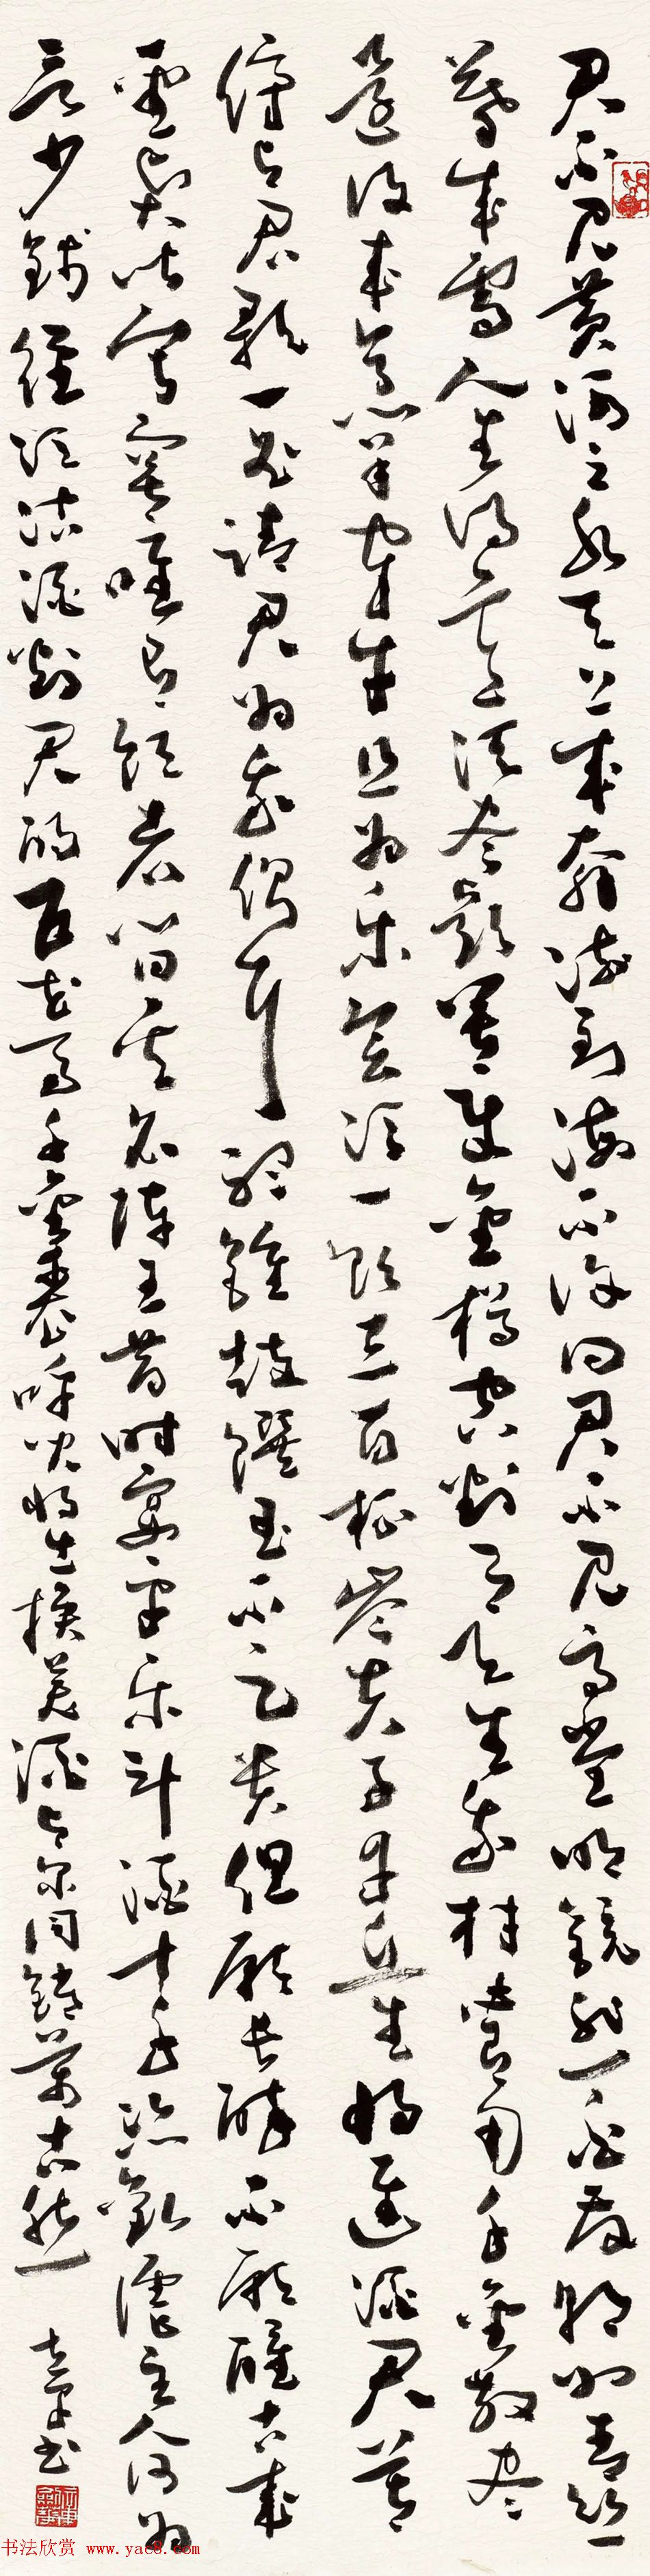 君不见黄河之水天上来奔流到海不复回君不见高堂明镜悲白发朝如青丝
暮成雪人生得意须尽欢莫使金樽空对月天生我材必有用千金散尽
还复来烹羊宰牛且为乐会须一饮三百杯岑夫子丹丘生将进酒君莫
停与君歌一曲请君为我倾耳听钟鼓馔玉不足贵但愿长醉不愿醒古来
圣贤皆寂寞唯有饮者留其名陈王昔时宴平乐斗酒十千恣欢谑主人何为
言少钱径须沽酒对君酌五花马千金裘呼儿将出换美酒与尔同销万古愁
书
书法欣赏 www.yac8.com